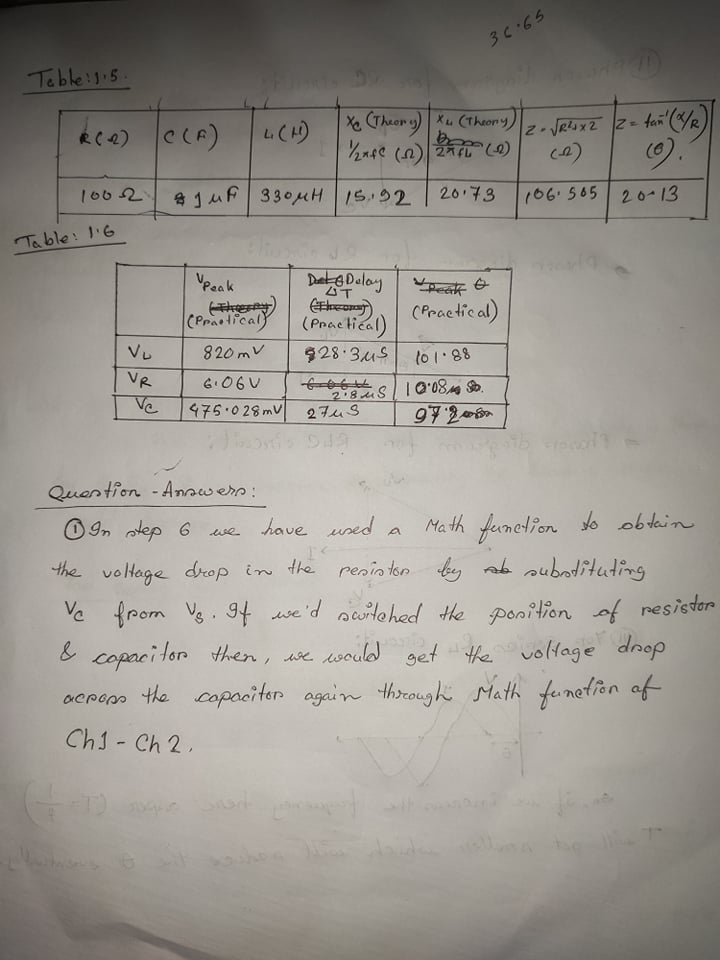 36.65
Table: 1.5.
R(Ω) C(F) L(H) Xc (Theory) 1/2πfC (Ω) XL (Theory) 2πfL (Ω) Z = √R²+X2 (Ω) Z = tan⁻¹(X/R) (θ).
100Ω 1μF 330μH 15.92 20.73 106.505 20.13
Table: 1.6
VPeak (Theory) (Practical) Delay ΔT (Theory) (Practical) VPeak θ (Practical)
VL 820mV 28.3μS 101.88
VR 6.06V 2.8μS 10.08
Vc 475.028mV 27μS 97.2
Question - Answers:
① In step 6 we have used a Math function to obtain
the voltage drop in the resistor by substituting
Vc from Vs. If we'd switched the position of resistor
& capacitor then, we would get the voltage drop
across the capacitor again through Math function of
Ch1 - Ch2.